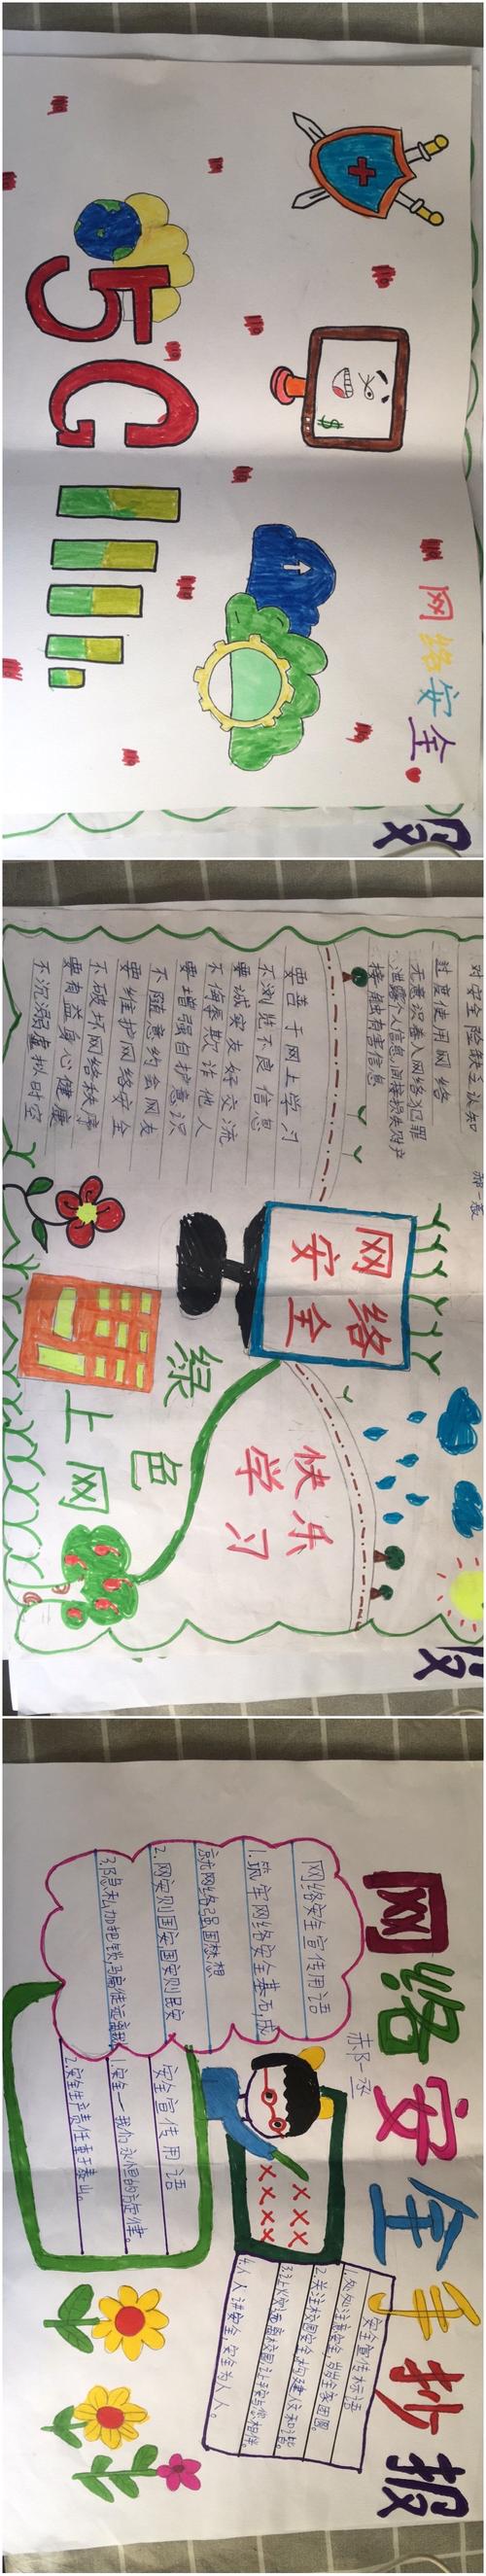 网络安全
5G
$
对安全险缺乏认知
过度使用网络
无意识卷入网络犯罪
泄露个人信息,间接损失财产
接触有害信息
要善于网上学习
不浏览不良信息
要诚实友好交流
不侮辱欺诈他人
要增强自护意识
不随意约会网友
要维护网络安全
不破坏网络秩序
要有益身心健康
不沉溺虚拟时空
网络
安全
快乐
学习
绿色
上网
网络安全手抄报
网络安全宣传用语
1.筑牢网络安全基石,成
就网络强国梦想
2.网安则国安国安则民安
安全宣传用语
1.安全—我们永恒的旋律。
2.安全生产责任重于泰山。
安全宣传标语
1.处处注意安全,岁岁全家团圆。
2.关注校园安全构建人和谐。
4.人人讲安全,安全为人人。